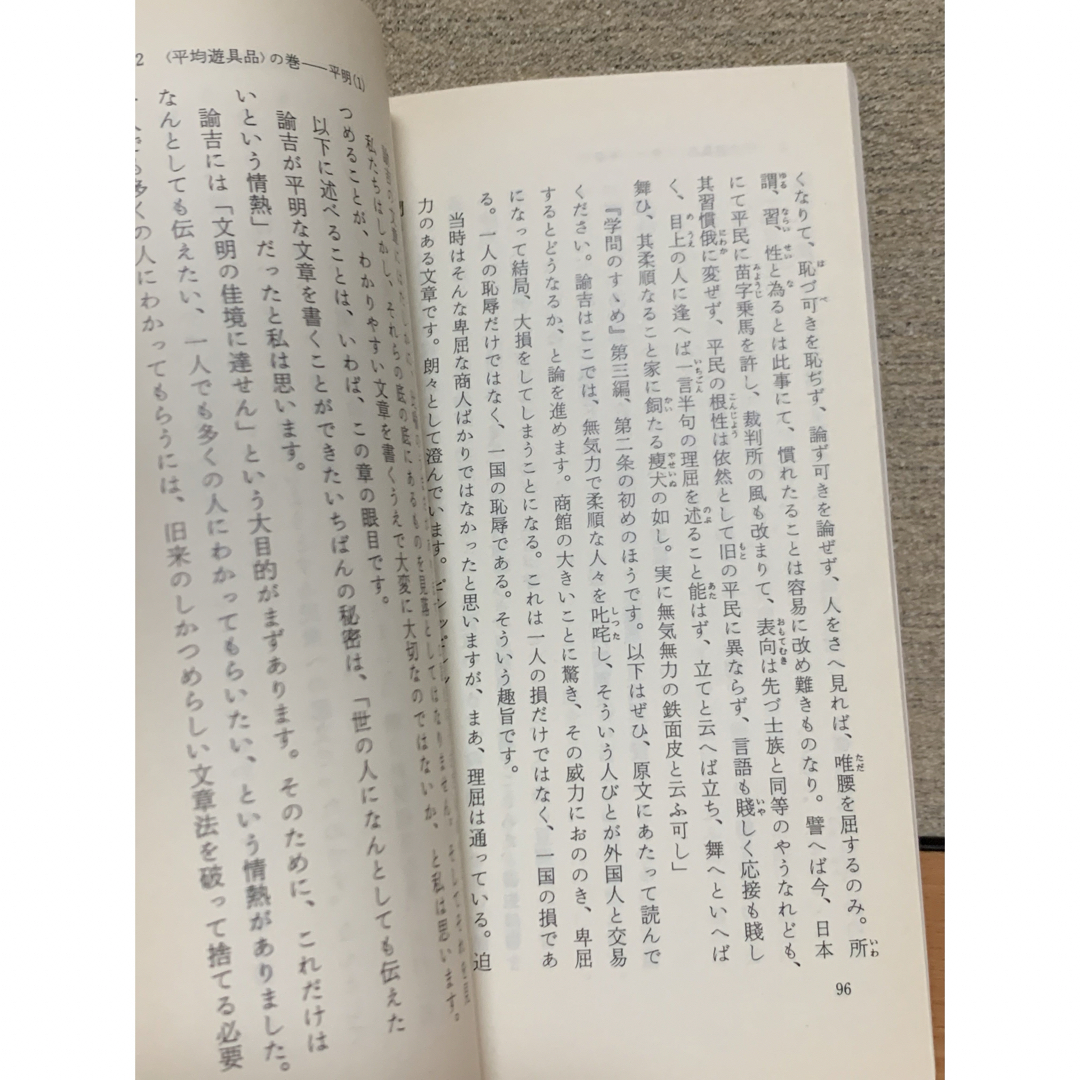 くなりて、恥づ可きを恥ぢず、論ず可きを論ぜず、人をさへ見れば、唯腰を屈するのみ。所
謂、習、性と為るとは此事にて、慣れたることは容易に改め難きものなり。譬へば今、日本
にて平民に苗字乗馬を許し、裁判所の風も改まりて、表向は先づ士族と同等のやうなれども、
其習慣俄に変ぜず、平民の根性は依然として旧の平民に異ならず、言語も賤しく応接も賤し
く、目上の人に逢へば一言半句の理屈を述ること能はず、立てと云へば立ち、舞へといへば
舞ひ、其柔順なること家に飼たる瘦犬の如し。実に無気無力の鉄面皮と云ふ可し」
『学問のすゝめ』第三編、第二条の初めのほうです。以下はぜひ、原文にあたって読んで
ください。諭吉はここでは、無気力で柔順な人々を叱咤し、そういう人びとが外国人と交易
するとどうなるか、と論を進めます。商館の大きいことに驚き、その威力におののき、卑屈
になって結局、大損をしてしまうことになる。これは一人の損だけではなく、一国の損であ
る。一人の恥辱だけではなく、一国の恥辱である。そういう趣旨です。
当時はそんな卑屈な商人ばかりではなかったと思いますが、まあ、理屈は通っている。迫
力のある文章です。朗々として澄んでいます。
96
2 〈平均遊具品〉の巻――平明(1)
私たちはしかし、それらの底の底にあるものを見落としてはなりません。そしてそれを見
つめることが、わかりやすい文章を書くうえで大変に大切なのではないか、と私は思います。
以下に述べることは、いわば、この章の眼目です。
諭吉が平明な文章を書くことができたいちばんの秘密は、「世の人になんとしても伝えた
いという情熱」だったと私は思います。
諭吉には「文明の佳境に達せん」という大目的がまずあります。そのために、これだけは
なんとしても伝えたい、一人でも多くの人にわかってもらいたい、という情熱がありました。
多くの人にわかってもらうには、旧来のしかつめらしい文章法を破って捨てる必要